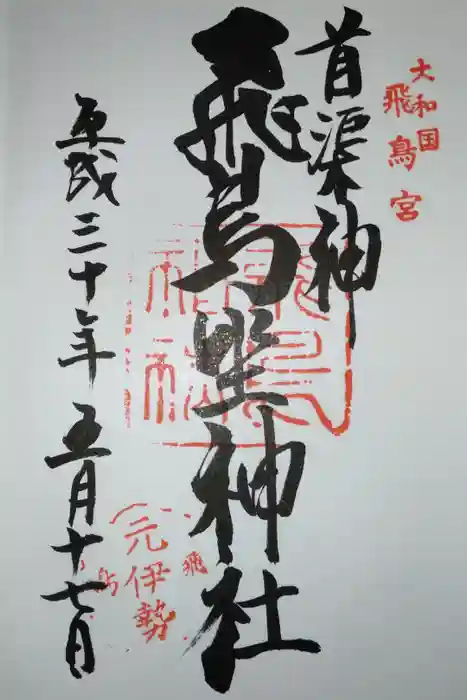 大和国
飛鳥宮
首渠神
飛鳥坐神社
平成三十年五月十七日
元伊勢
飛